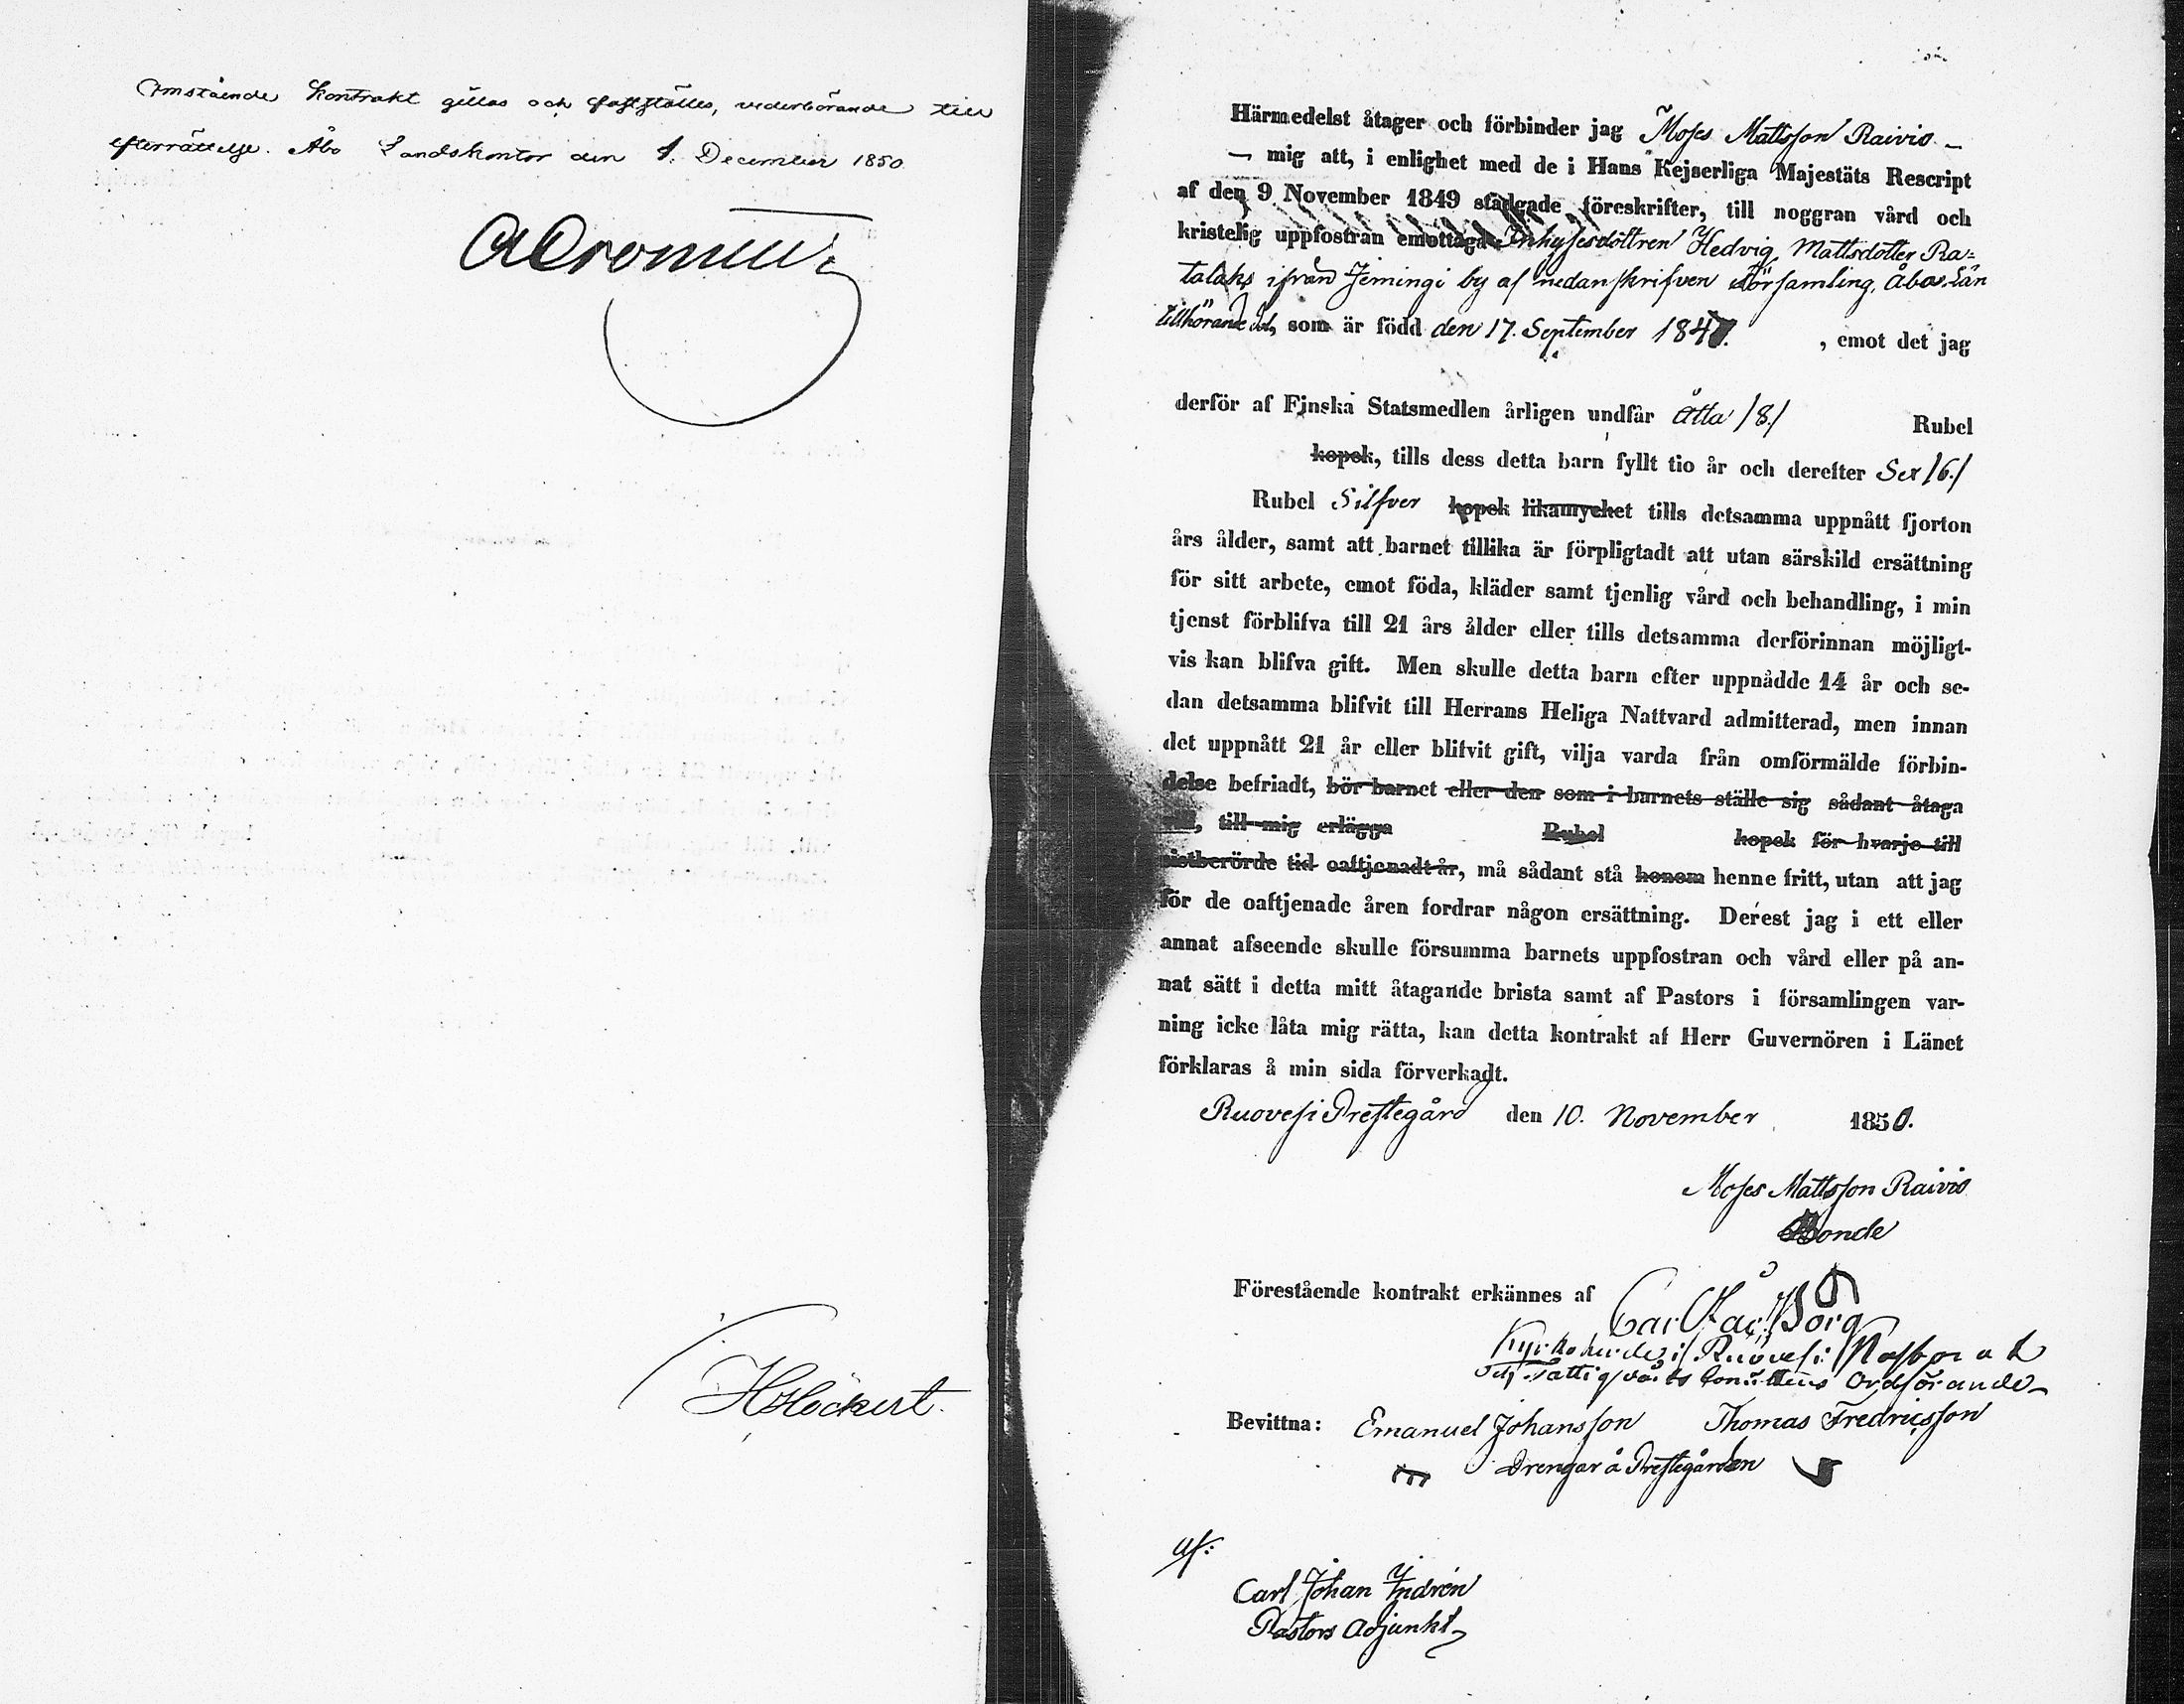 Omstående Kontrakt gillas och fastställes, vederbörande till
efterrättelse. Åbo Landskontor den 1. December 1850.
HHöckert.
Härmedelst åtager och förbinder jag Moses Mattsson Raivio -
- mig att, i enlighet med de i Hans Kejserliga Majestäts Rescript
af den 9 November 1849 stadgade föreskrifter, till noggran vård och
kristelig uppfostran emottaga Inhysesdottren Hedvig Mattsdotter Ra=
talaks ifrån Jemingi by af nedanskrifven församling, Åbo Län
tillhörande, som är född den 17. September 184 , emot det jag
derför af Finska Statsmedlen årligen undfår Åtta /8./ Rubel
kopek, tills dess detta barn fyllt tio år och derefter Sex /6./
Rubel Silfver kopek likamycket tills detsamma uppnått fjorton
års ålder, samt att barnet tillika är förpligtadt att utan särskild ersättning
för sitt arbete, emot föda, kläder samt tjenlig vård och behandling, i min
tjenst förblifva till 21 års ålder eller tills detsamma derförinnan möjligt-
vis kan blifva gift. Men skulle detta barn efter uppnådde 14 år och se-
dan detsamma blifvit till Herrans Heliga Nattvard admitterad, men innan
det uppnått 21 år eller blifvit gift, vilja varda från omförmälde förbin-
delse befriadt, bör barnet eller den som i barnets ställe sig sådant åtaga
vill, till mig erlägga Rubel kopek för hvarje till
sistberörde tid oaftjenadt år, må sådant stå honom henne fritt, utan att jag
för de oaftjenade åren fordrar någon ersättning. Derest jag i ett eller
annat afseende skulle försumma barnets uppfostran och vård eller på an-
nat sätt i detta mitt åtagande brista samt af Pastors i församlingen var-
ning icke låta mig rätta, kan detta kontrakt af Herr Guvernören i Länet
förklaras å min sida förverkadt.
Ruovesi Prestegård den 10. November 1850.
Moses Mattsson Raivio
Bonde
Förestående kontrakt erkännes af Carl Borg
Kyrkoherde i Ruovesi Pastorat
och Fattigvårds Comitteens Ordförande
Bevittna: Emanuel Johansson Thomas Fredricsson
Drengar å Prestegården
af:
Carl Johan Indrén
Pastors Adjunkt